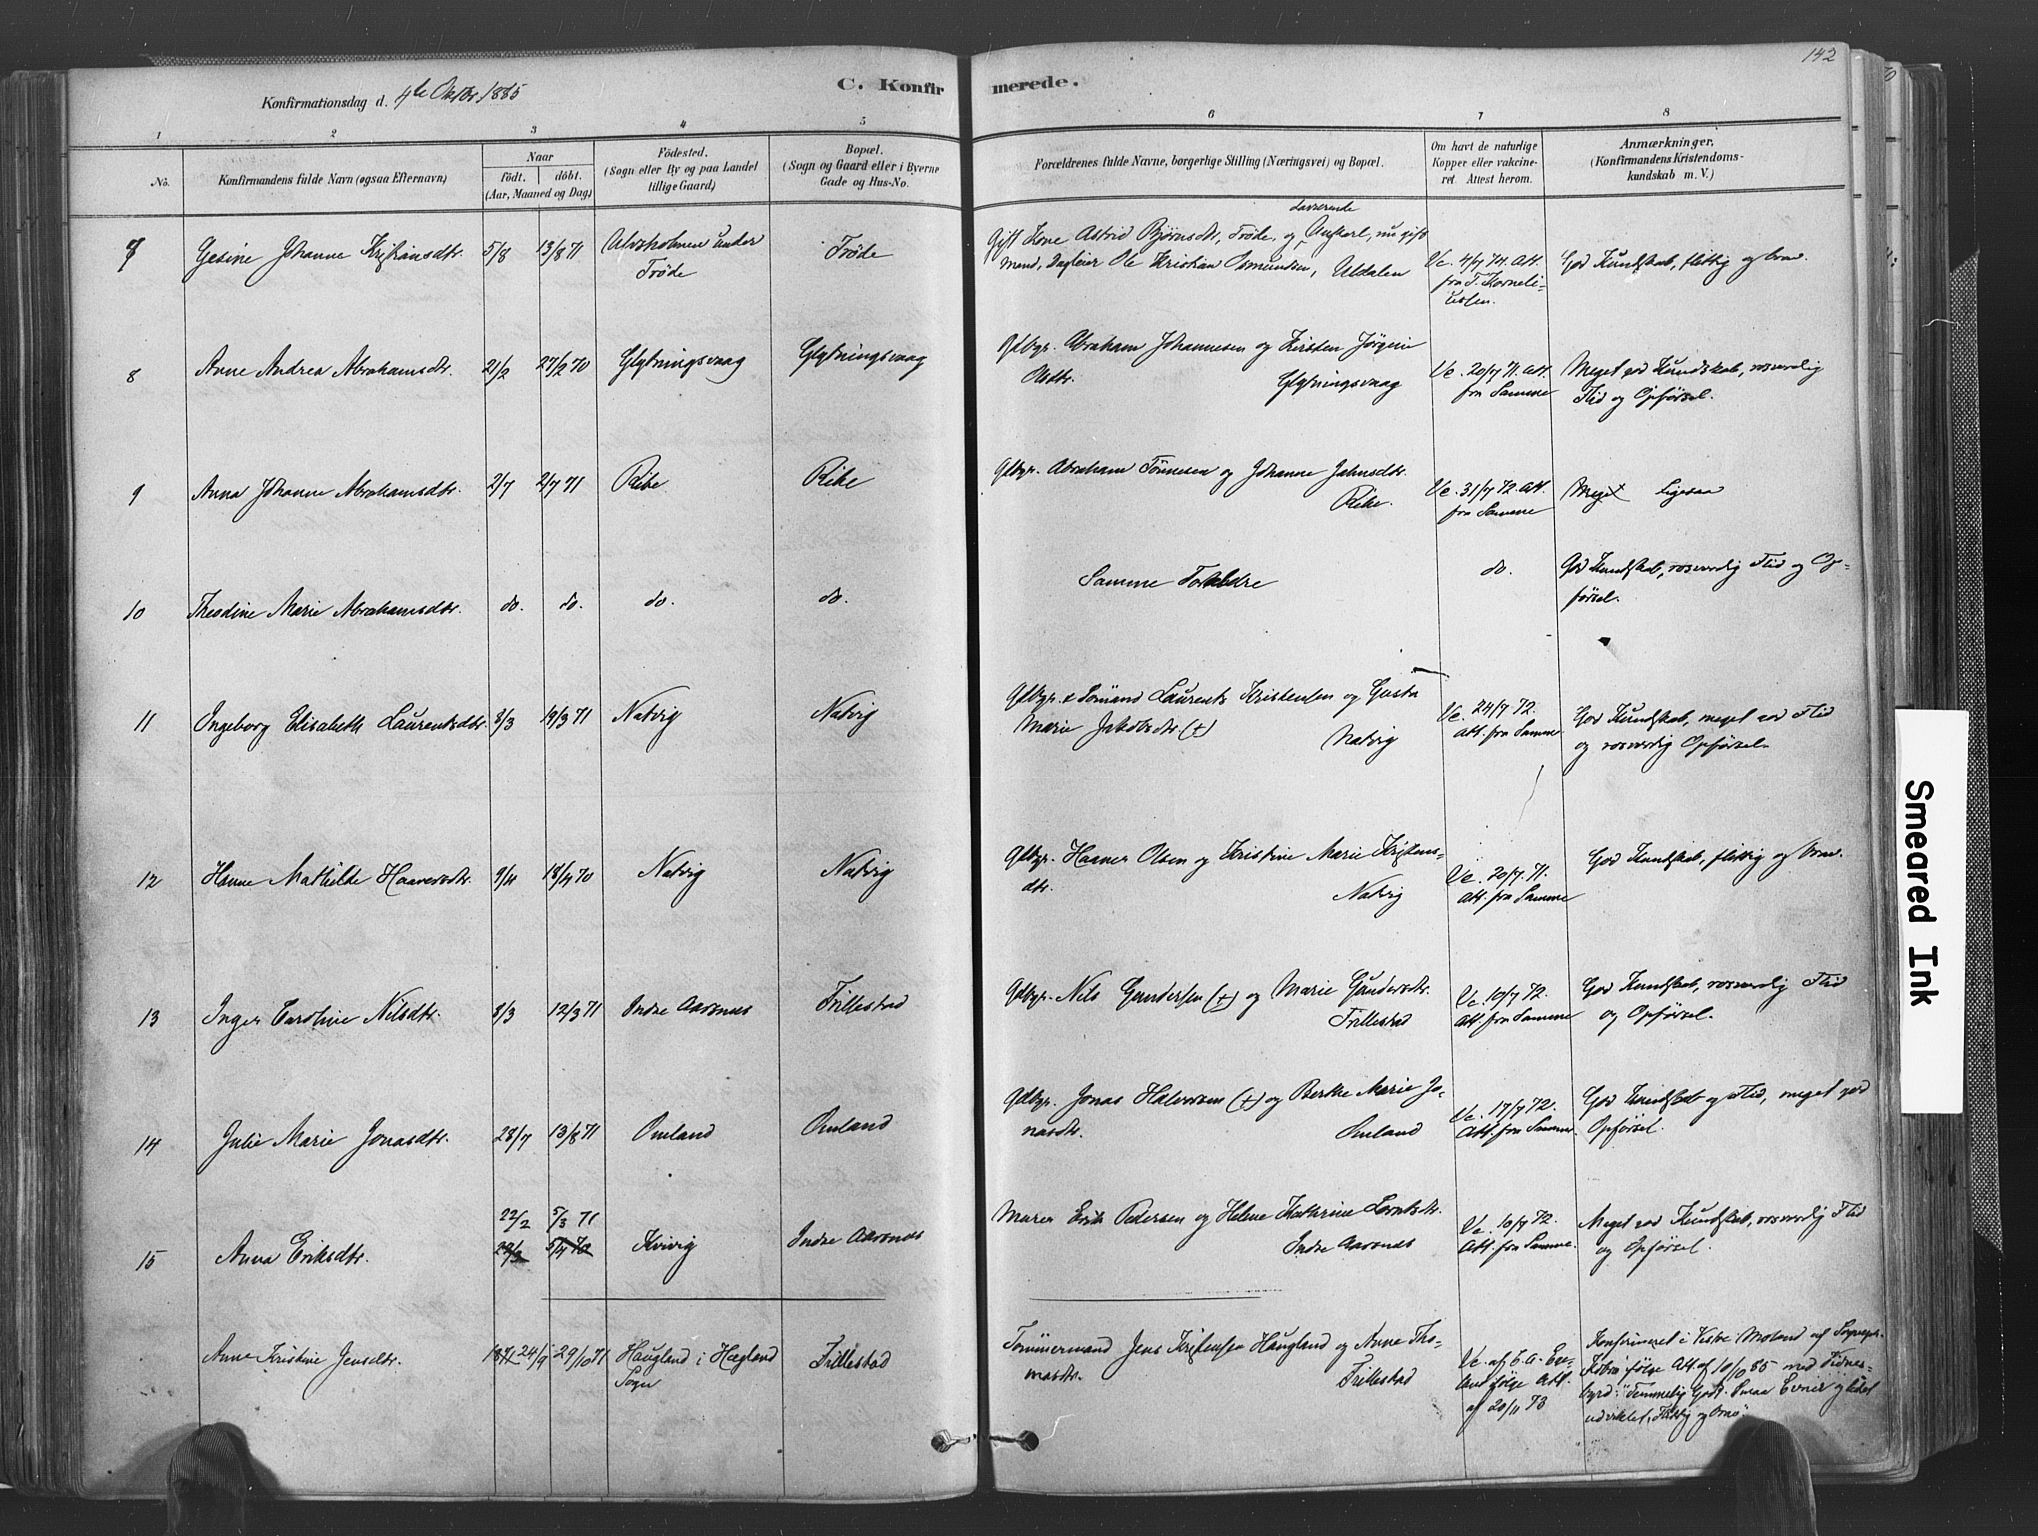 142
Konfirmationsdag d. 4de Oktbr. 1885
C. Konfirmerede.
1 2 3 4 5 6 7 8
No.
Konfirmandens fulde Navn (ogsaa Efternavn)
Naar
födt. döbt.
(Aar, Maaned og Dag)
Födested.
(Sogn eller By og paa Landet
tillige Gaard)
Bopæl.
(Sogn og Gaard eller i Byerne
Gade og Hus-No.
Forældrenes fulde Navne, borgerlige Stilling (Næringsvei) og Bopæl.
Om havt de naturlige
Kopper eller vakcine-
ret. Attest herom.
Anmærkninger.
(Konfirmandens Kristendoms-
kundskab m. V.)
7
Gesine Johanne Kristiansdtr. 5/8 13/8 71
Alvsholmen under
Trøde
Trøde
daværende
Gift Kone Astrid Bjørnsdtr. Trøde, og Ungkarl, nu gift
Mand, Dagleier Ole Kristian Osmundsen, Uldalen
Vc. 4/7 74. Att.
fra T. Korneli-
ussen.
God Kundskab, flittig og brav.
8
Anne Andrea Abrahamsdtr. 21/2 27/2 70 Glybningsvaag Glybningsvaag
Gdbgr. Abraham Johannesen og Kirsten Jørgine
Olsdtr. Glybningsvaag
Vc. 20/7 71. Att.
fra Samme
Meget god Kundskab, rosværdig
Flid og Opførsel.
9
Anna Johanne Abrahamsdtr. 2/7 2/7 71 Ribe Ribe
Gdbgr. Abraham Tønnesen og Johanne Jahnsdtr.
Ribe.
Vc. 31/7 72. Att.
fra Samme
Meget ligesaa
10
Theodine Marie Abrahamsdtr. do. do. do. do.
Samme Forældre
do.
God Kundskab, rosværdig Flid og Op-
førsel.
11
Ingeborg Elisabeth Laurentsdtr. 8/3 19/3 71 Natvig Natvig
Gdbgr. & Sømand Laurents Kristensen og Gusta
Marie Jakobsdtr. (+) Natvig
Vc. 24/7 72.
Att. fra Samme
God Kundskab, meget god Flid
og rosværdig Opførsel.
12
Hanne Mathilde Haaversdtr. 9/4 18/4 70 Natvig Natvig
Gdbgr. Haaver Olsen og Kristine Marie Kristens-
dtr. Natvig
Vc. 20/7 71.
Att. fra Samme
God Kundskab, flittig og brav.
13
Inger Caroline Nilsdtr. 8/3 12/3 71 Indre Aarsnes Frillestad
Gdbgr. Nils Gundersen (+) og Marie Gundersdtr.
Frillestad
Vc. 10/7 72.
Att. fra Samme
God Kundskab, rosværdig Flid
og Opførsel.
14
Julie Marie Jonasdtr. 28/7 13/8 71 Omland Omland
Gdbgr. Jonas Halvorsen (+) og Berthe Marie Jo-
nasdtr. Omland
Vc. 17/7 72.
Att. fra Samme.
God Kundskab og Flid, meget god
Opførsel.
15
Anna Eriksdtr.
22/2 5/3 71
29/3 5/4 70
Kvivig Indre Aarsnes
Murer Erik Pedersen og Helene Kathrine Lorntsdtr.
Indre Aarsnes
Vc. 10/7 72.
Att. fra Samme.
Meget god Kundskab, rosværdig Flid
og Opførsel.
Anne Kristine Jensdtr. 1871 24/9 29/10 71
Haugland i Hægland
Sogn
Frillestad
Tømmermand Jens Kristensen Haugland og Anne Tho-
masdtr. Frillestad
Vc. af
følge Att.
af 20/11 73
Konfirmeret i Vestre Moland af Sognepr.
følge Att af 10/10 85 med Vidnes-
byrd: "Temmelig Godt. Smaa Evner og lidet
udviklet. Flittig og
Smeared Ink